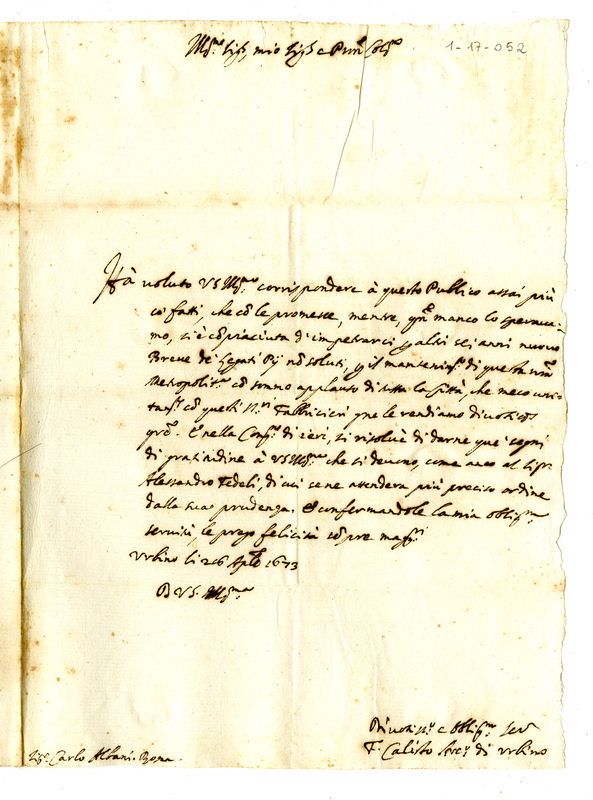 Ill.mo Sig.r, mio Sig.r e Pron Col.mo
1-17-052
Hà voluto VS Ill.ma corrispondere à questo Publico assai più
cõ fatti, che cõ le promesse, mentre, qñ manco lo sperava-
mo, si è cõpiaciuta d'impetrarci p altri sei anni nuovo
Breve de Legati Pij nõ soluti, p il mantenim.to di questa nr̃a
Metropolit.na cõ sommo applauso di tutta la Città, che meco unita-
cõ questi SS.ri Fabbricieri ne le rendiamo divotiss.e
grẽ. E nella Cong.ne di ieri, si risolvè di darne que' segni
di gratitudine à VS Ill.ma che si devono, come anco al Sig.r
Alessandro Fedeli, di cui se ne attenderà più preciso ordine
dalla sua prudenza. E confermandole la mia oblig.ma
servitù, le prego felicità sẽpre magg.ri
Urbino li 26 Aple 1673
D VS. Ill.ma
Divotiss.o e Oblig.mo Ser.e
F. Calisto Arc.o di Urbino
Sig.r Carlo Albani. Roma.